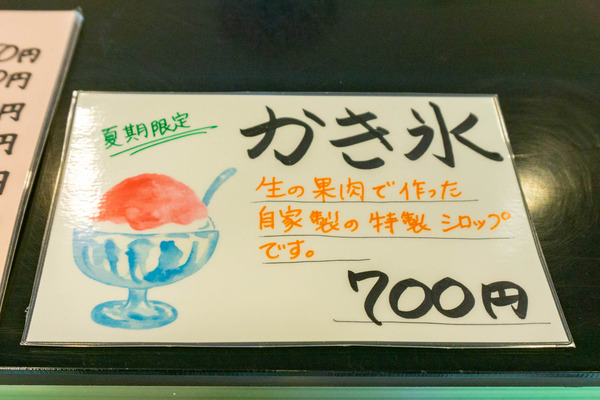 夏期限定
かき氷
生の果肉で作った
自家製の特製シロップ
です。
700円
0円
0円
円
円
円